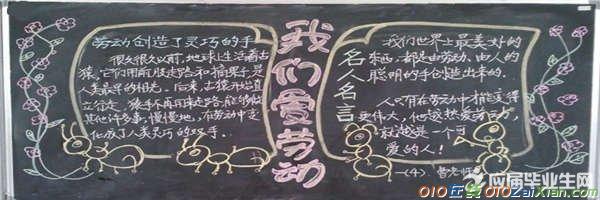 劳动创造了灵巧的手
很久很久以前,地球上生活着古
猿。它们用前肢走路和摘果子,是
人类最早的祖先。后来,古猿开始直
立行走。猿手再用来走路,能够做
其他许多事,慢慢地,在劳动中变
化成了人类灵巧的双手。
我们爱劳动
名人名言
我们世界上最美好的
东西,都是由劳动、由人的
聪明的手创造出来的。
人只有在劳动中才能变得
更伟大,他越热爱劳动,
就越是一个可
爱的人!
一(4)
曹老师
应届毕业生网
010在线 010ZaiXian.com